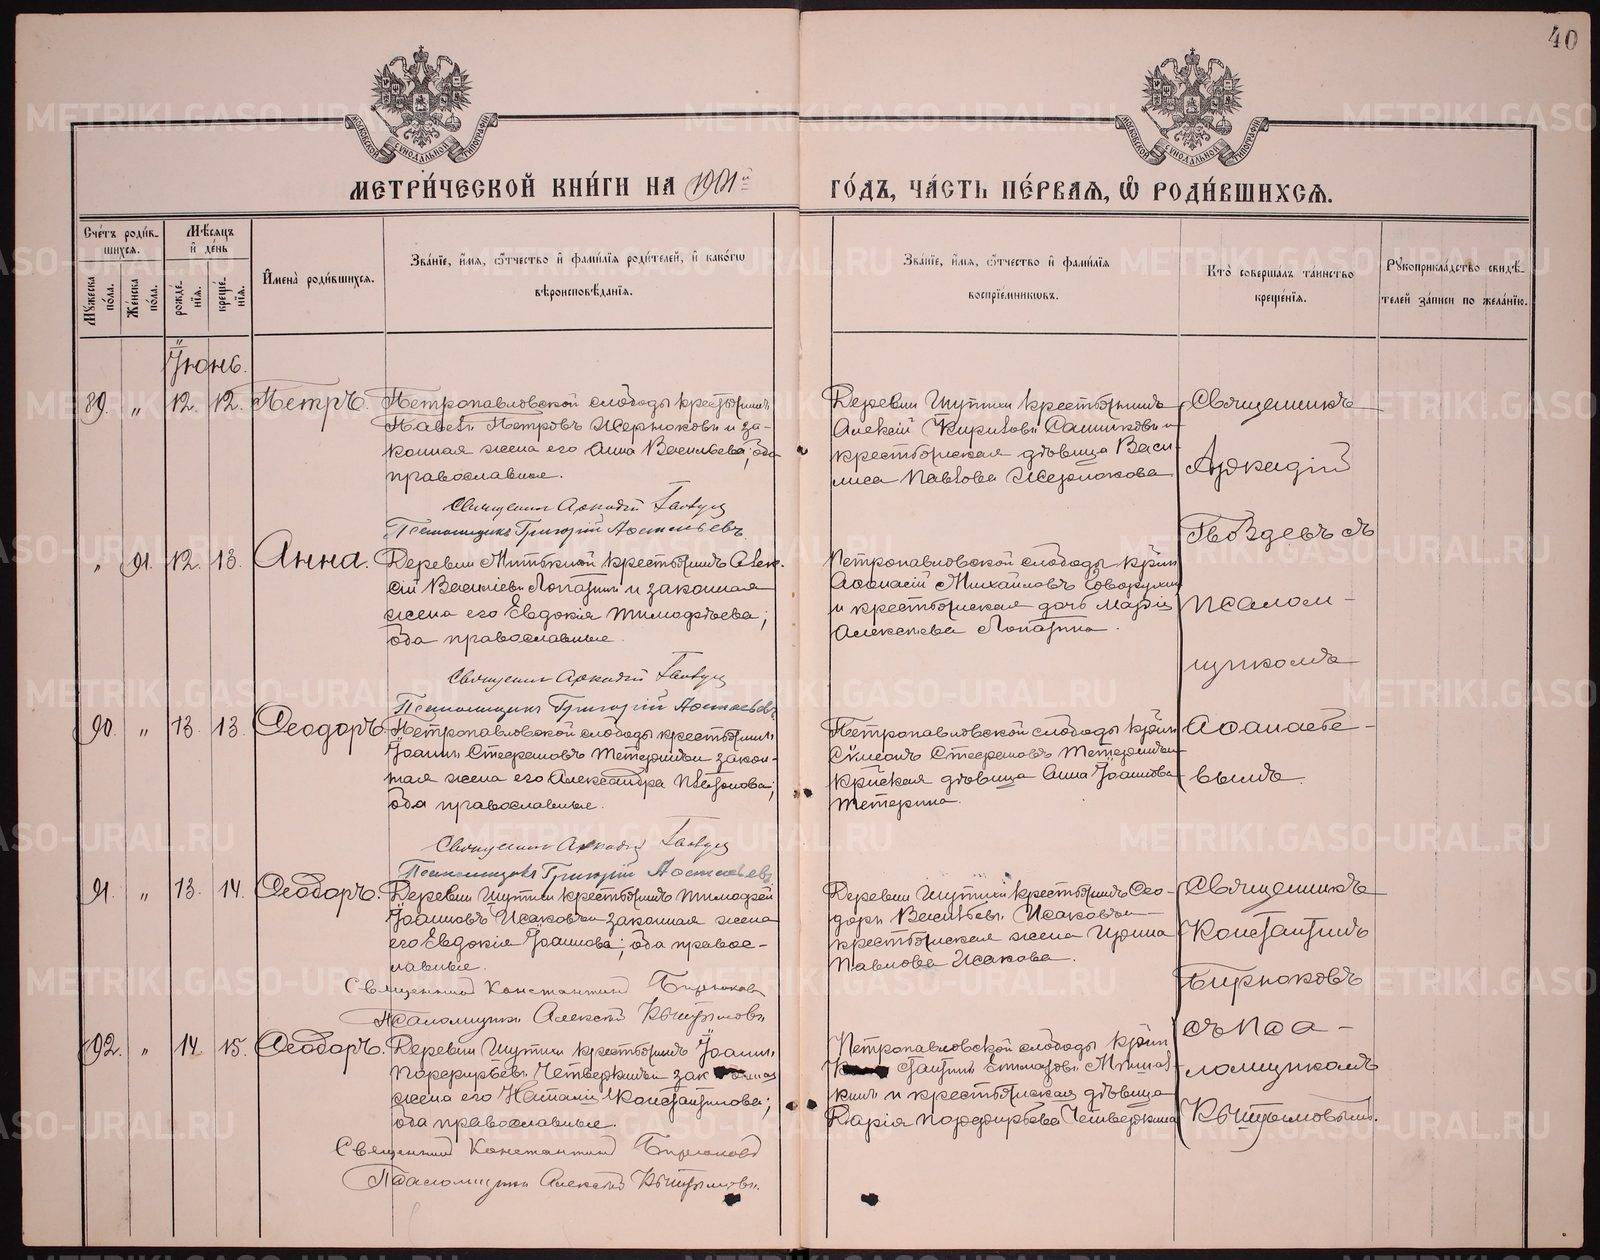 40
МЕТРИ́ЧЕСКОЙ КНИ́ГИ НА 1901й ГО́ДЪ, ЧА́СТЬ ПЕ́РВАЯ, Ѡ РОДИ́ВШИХСЯ.
Сче́тъ роди́вшихся.
Му́жеска по́ла.
Же́нска по́ла.
Мѣ́сяцъ и де́нь
рожде́нїя.
креще́нїя.
И́мена роди́вшихся.
Зва́нїе, и́мя, ѻ́тчество и фами́лїя роди́телей, и како́гѡ
вѣроисповѣ́данїя.
Зва́нїе, и́мя, ѻ́тчество и фами́лїя
воспрїе́мникѡвъ.
Кто̀ соверша́лъ та́инство
креще́нїя.
Рꙋкоприкла́дство свидѣ́-
телей за́писи по жела́нїю.
Іюнь.
89. „ 12. 12. Петръ.
Петропавловской слободы крестьянинъ
Павелъ Петровъ Жернаковъ и за-
конная жена его Анна Васильева; оба
православные.
Священникъ Аркадій
Псаломщикъ Григорій
Деревни Шутиной крестьянинъ
Алексій Кириловъ Санниковъ и
крестьянская дѣвица Васи-
лиса Павлова Жернакова
Священникъ
Аркадій
Гвоздевъ съ
псалом-
щикомъ
„ 91. 12. 13. Анна.
Деревни крестьянинъ Алек-
сій Васильевъ Лопатинъ и законная
жена его Евдокія Тимофѣева;
оба православные.
Священникъ Аркадій
Псаломщикъ Григорій
Петропавловской слободы кр-нинъ
Аѳанасій Михайловъ
и крестьянская дочь Марія
Алексѣева Лопатина.
90. „ 13. 13. Ѳеодоръ.
Петропавловской слободы крестьянинъ
Іоаннъ Стефановъ Тетеринъ и закон-
ная жена его Александра Платонова;
оба православные.
Священникъ Аркадій
Псаломщикъ Григорій
Петропавловской слободы кр-нинъ
Сѵмеонъ Стефановъ Тетеринъ и
кр-нская дѣвица Анна Іоаннова
Тетерина.
вымъ.
91. „ 13. 14. Ѳеодоръ.
Деревни Шутиной крестьянинъ Тимофей
Іоанновъ Исаковъ и законная жена
его Евдокія Іоаннова; оба правос-
лавные.
Священникъ Константинъ Бирюковъ
Псаломщикъ Алексій Кыштымовъ
Деревни Шутиной крестьянинъ Ѳео-
доръ Васильевъ Исаковъ и
крестьянская жена Ирина
Павлова Исакова.
Священникъ
Константинъ
Бирюковъ
съ пса-
ломщикомъ
Кыштымовымъ.
92. „ 14. 15. Ѳеодоръ.
Деревни Шутиной крестьянинъ Іоаннъ
Порфирьевъ Четверкинъ и законная
жена его Наталія Константинова;
оба православные.
Священникъ Константинъ Бирюковъ
Псаломщикъ Алексій Кыштымовъ.
Петропавловской слободы кр-нинъ
и крестьянская дѣвица
Дарія Порфирьева Четверкина
METRIKI.GASO-URAL.RU